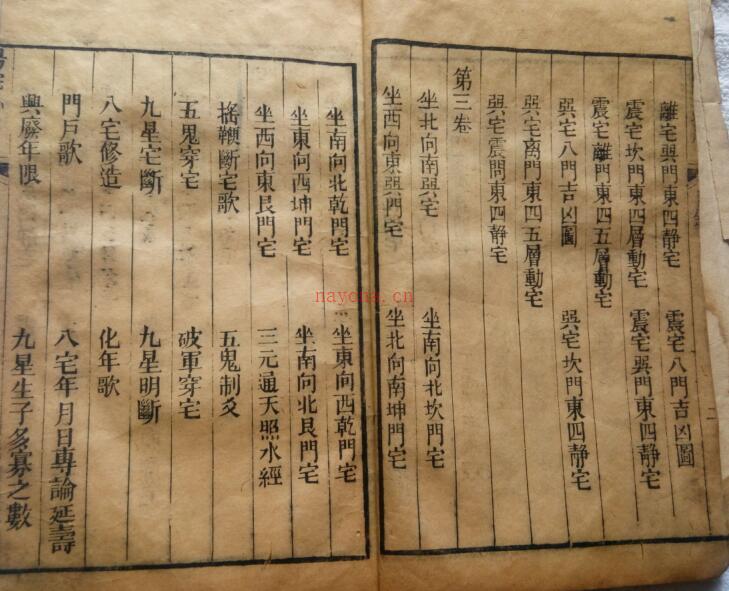 離宅巽門東四静宅　震宅八門吉凶圖
震宅坎門東四層動宅　震宅巽門東四静宅
震宅離門東四五層動宅
巽宅八門吉凶圖　巽宅坎門東四静宅
巽宅离門東四五層動宅
巽宅震問東四静宅
第三卷
坐北向南巽宅　坐南向北坎門宅
坐西向東巽門宅　坐北向南坤門宅
坐南向北乾門宅　坐東向西乾門宅
坐東向西坤門宅　坐南向北艮門宅
坐西向東艮門宅　三元通天照水經
搖鞭斷宅歌　五鬼制爻
五鬼穿宅　破軍穿宅
九星宅斷　九星明斷
八宅修造　化年歌
門戸歌　八宅年月日専論延壽
興廢年限　九星生子多寡之數
nayona.cn